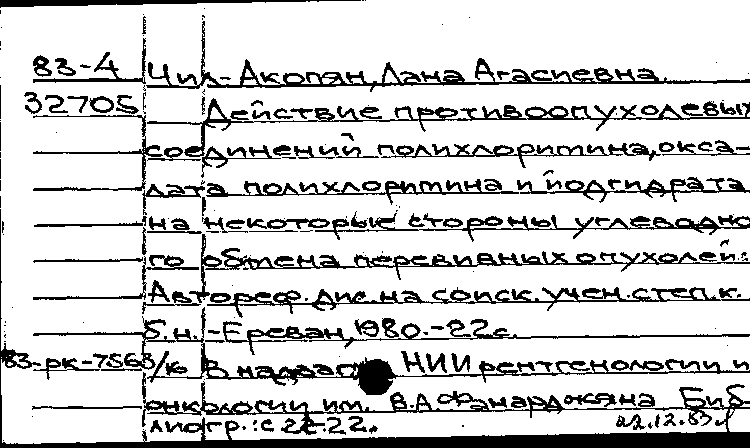 83-4 Чил-Акопян, Лана Агасиевна.
32705 Действие противоопухолевых
соединений полихлоритина, окса-
лата полихлоритина и йодгидрата
на некоторые стороны углеводно
го обмена перевивных опухолей:
Автореф. дис. на соиск. учен. степ. к.
б. н. - Ереван, 1980. - 22 с.
83-рк-7563/к В надзаг НИИ рентгенологии и
онкологии им. В.А. Фанарджяна Биб-
лиогр.: с 22-22.